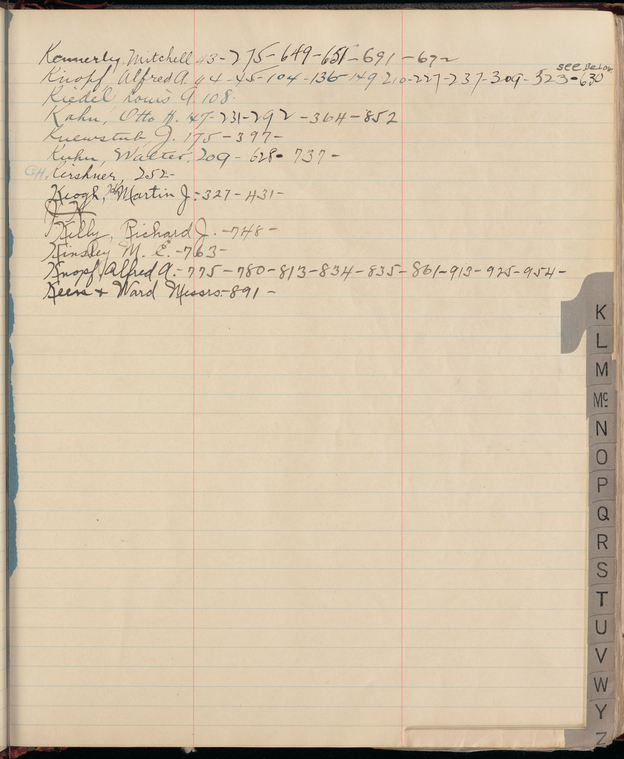 Kennerly, Mitchell 43-275-649-651-691-692
see below
Knopf, Alfred A. 44-45-104-136-149-210-227-237-309-523-630
Riedel Louis G. 108-
Kahn, Otto H. 147-231-292-364-852
Knewstub, J. 175-397-
Kuhn, Walter, 209-628-737-
G.H. Kirshner, 252-
Keogh, Martin J.-327-431-
Killy, Richard J.-748-
Kinsley M. E.-763-
Knopf Alfred A.-775-780-813-834-835-861-913-925-954-
Keen + Ward Messrs.-891-
K
L
M
Mc
N
O
P
Q
R
S
T
U
V
W
Y
Z